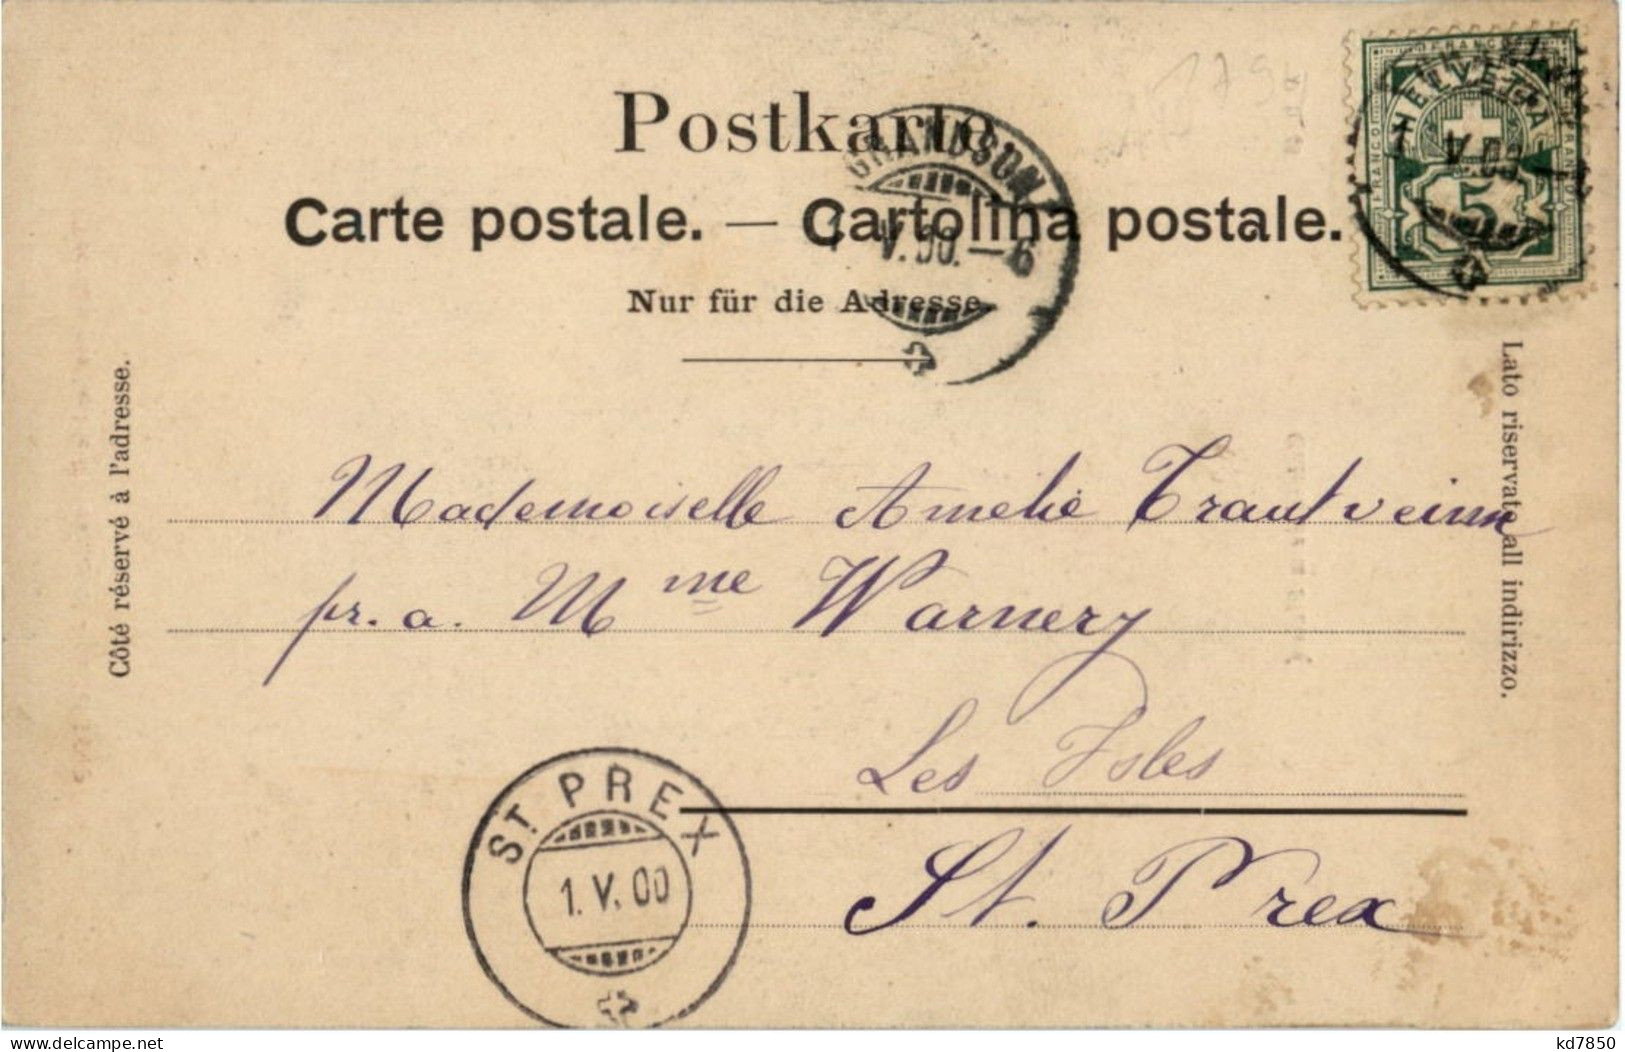 Postkarte
Carte postale. — Cartolina postale.
Nur für die Adresse.
GRANDSON
V. 00. — 6
FRANCO
HELVETIA
FRANCO
5
Côté réservé à l'adresse.
Lato riservato all indirizzo.
Mademoiselle Amélie Trautveinn
pr. a. Mme Warnery
Les Isles
St. Prex
ST. PREX
1. V. 00
delcampe.net
kd7850